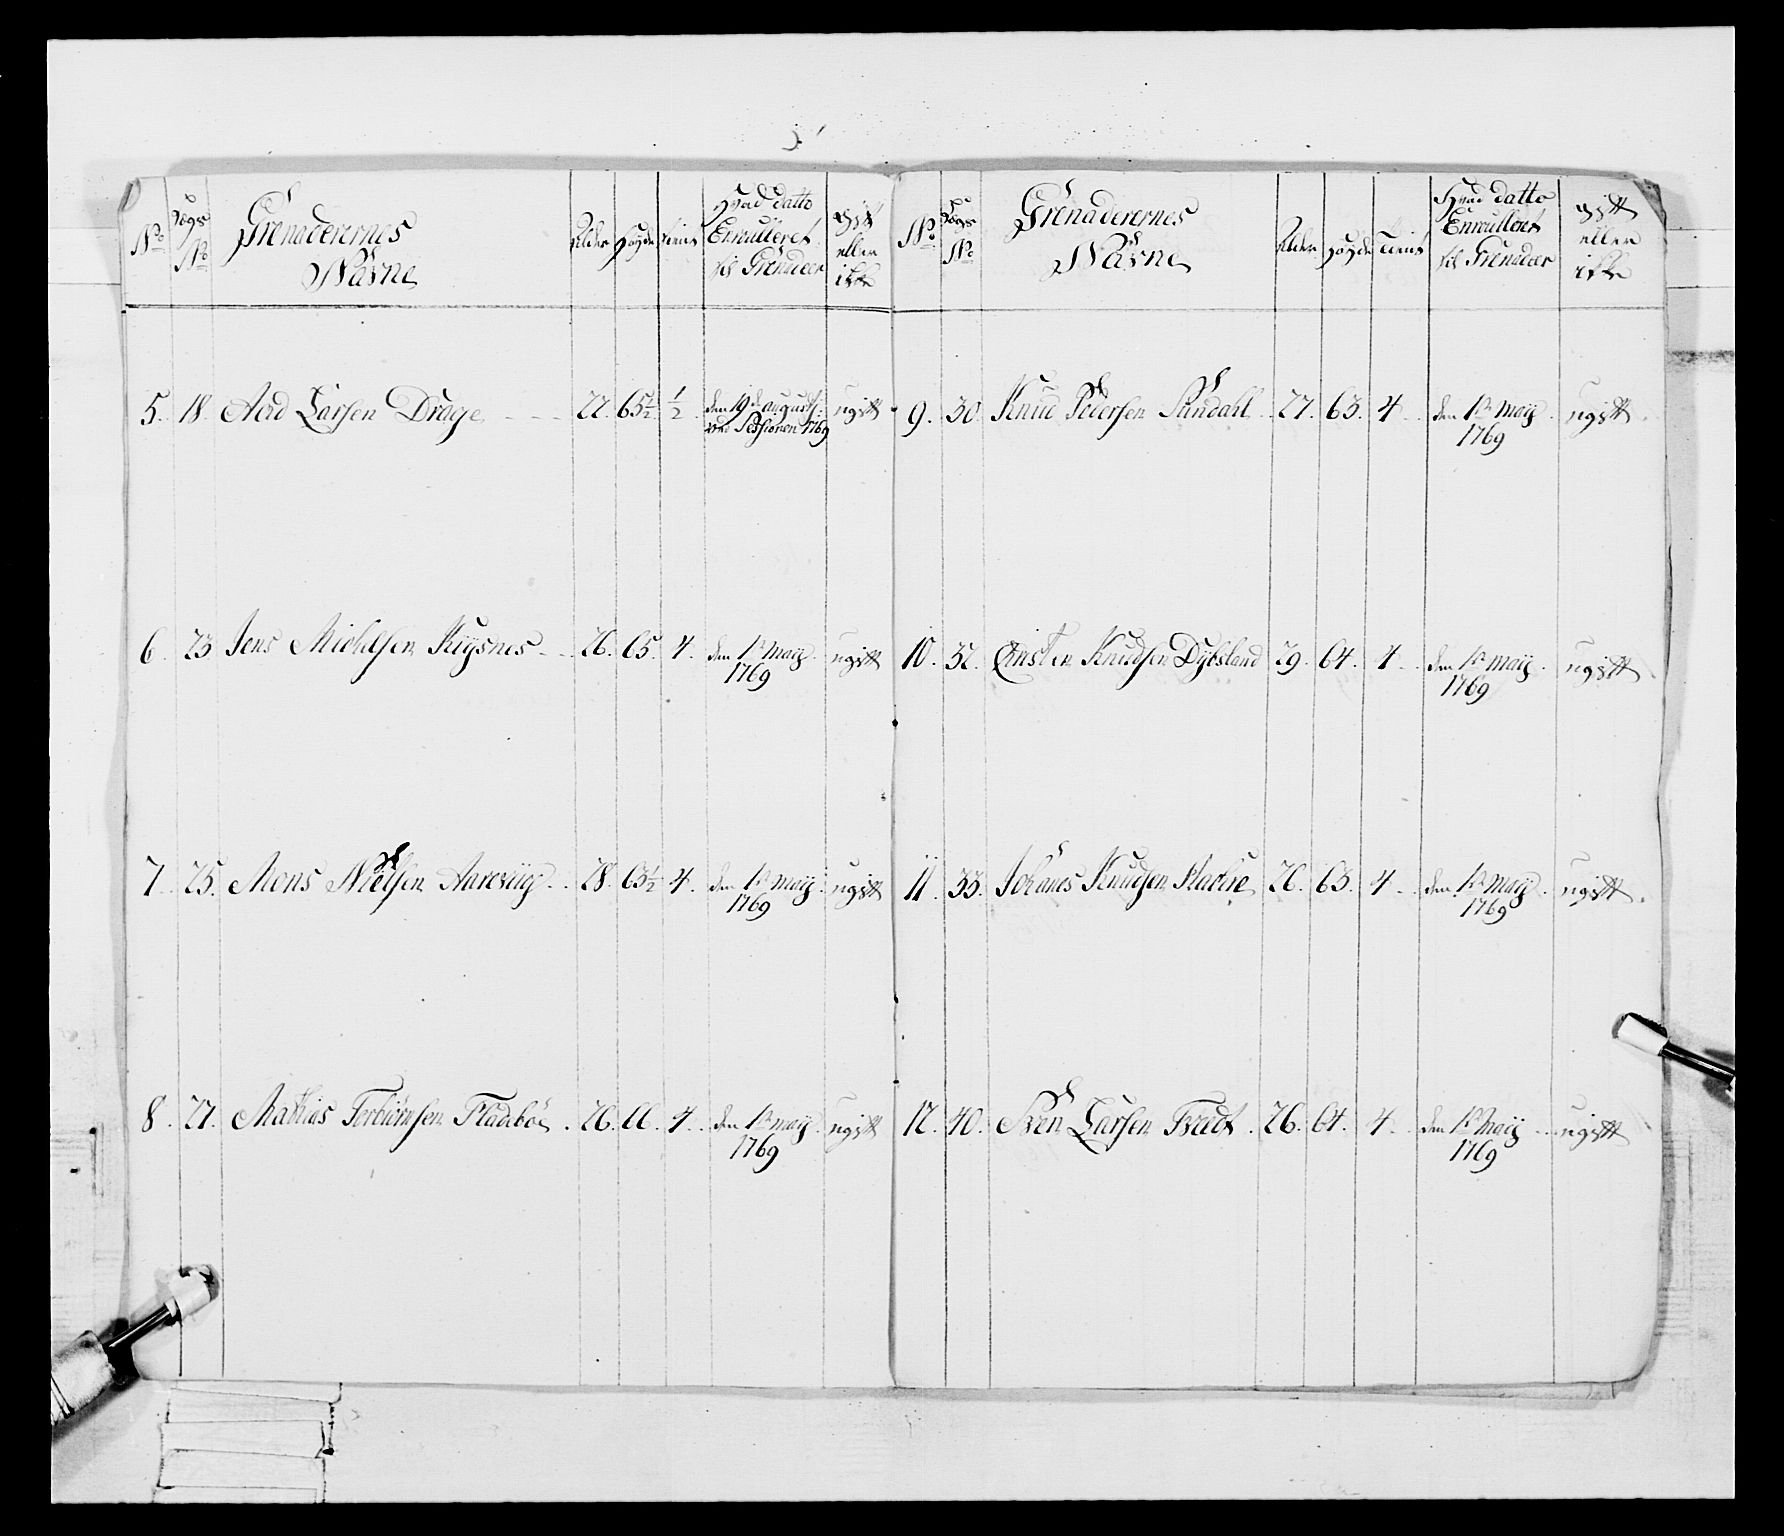 No
Lægs No
Grenaderernes Navne
Alder
Høyde
Tient
Hvad datto Enroulleret til Grenadeer
gift eller ikke
5. 18. Aad Larsen Drage 22. 65 1/2 1/2 den 19de august: ugift
ved Sessionen 1769
6. 23 Jens Michelsen Kysnes 26. 65. 4. den 1te maÿ ugift
1769
7. 25. Mons Nielsen Aarevug 28. 63 1/2 4. den 1te maÿ ugift
1769
8. 27. Mathias Torbiørnsen Fladebøe 26. 66. 4. den 1te maÿ ugift
1769
No
Lægs No
Grenaderernes Navne
Alder
Høyde
Tient
Hvad datto Enroulleret til Grenadeer
gift eller ikke
9. 30. Knud Pedersen Sundahl 27. 63. 4 den 1te maÿ ugift
1769
10. 32. Knudsen Dybsland 29. 64. 4 den 1te maÿ ugift
1769
11. 33. Johanes Knudsen 26. 63. 4 den 1te maÿ ugift
1769
12. 40. Sven Larsen Tvedt 26. 64. 4. den 1te Maÿ ugift
1769